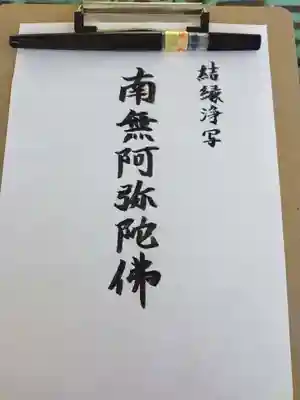 結縁浄写
南無阿弥陀佛